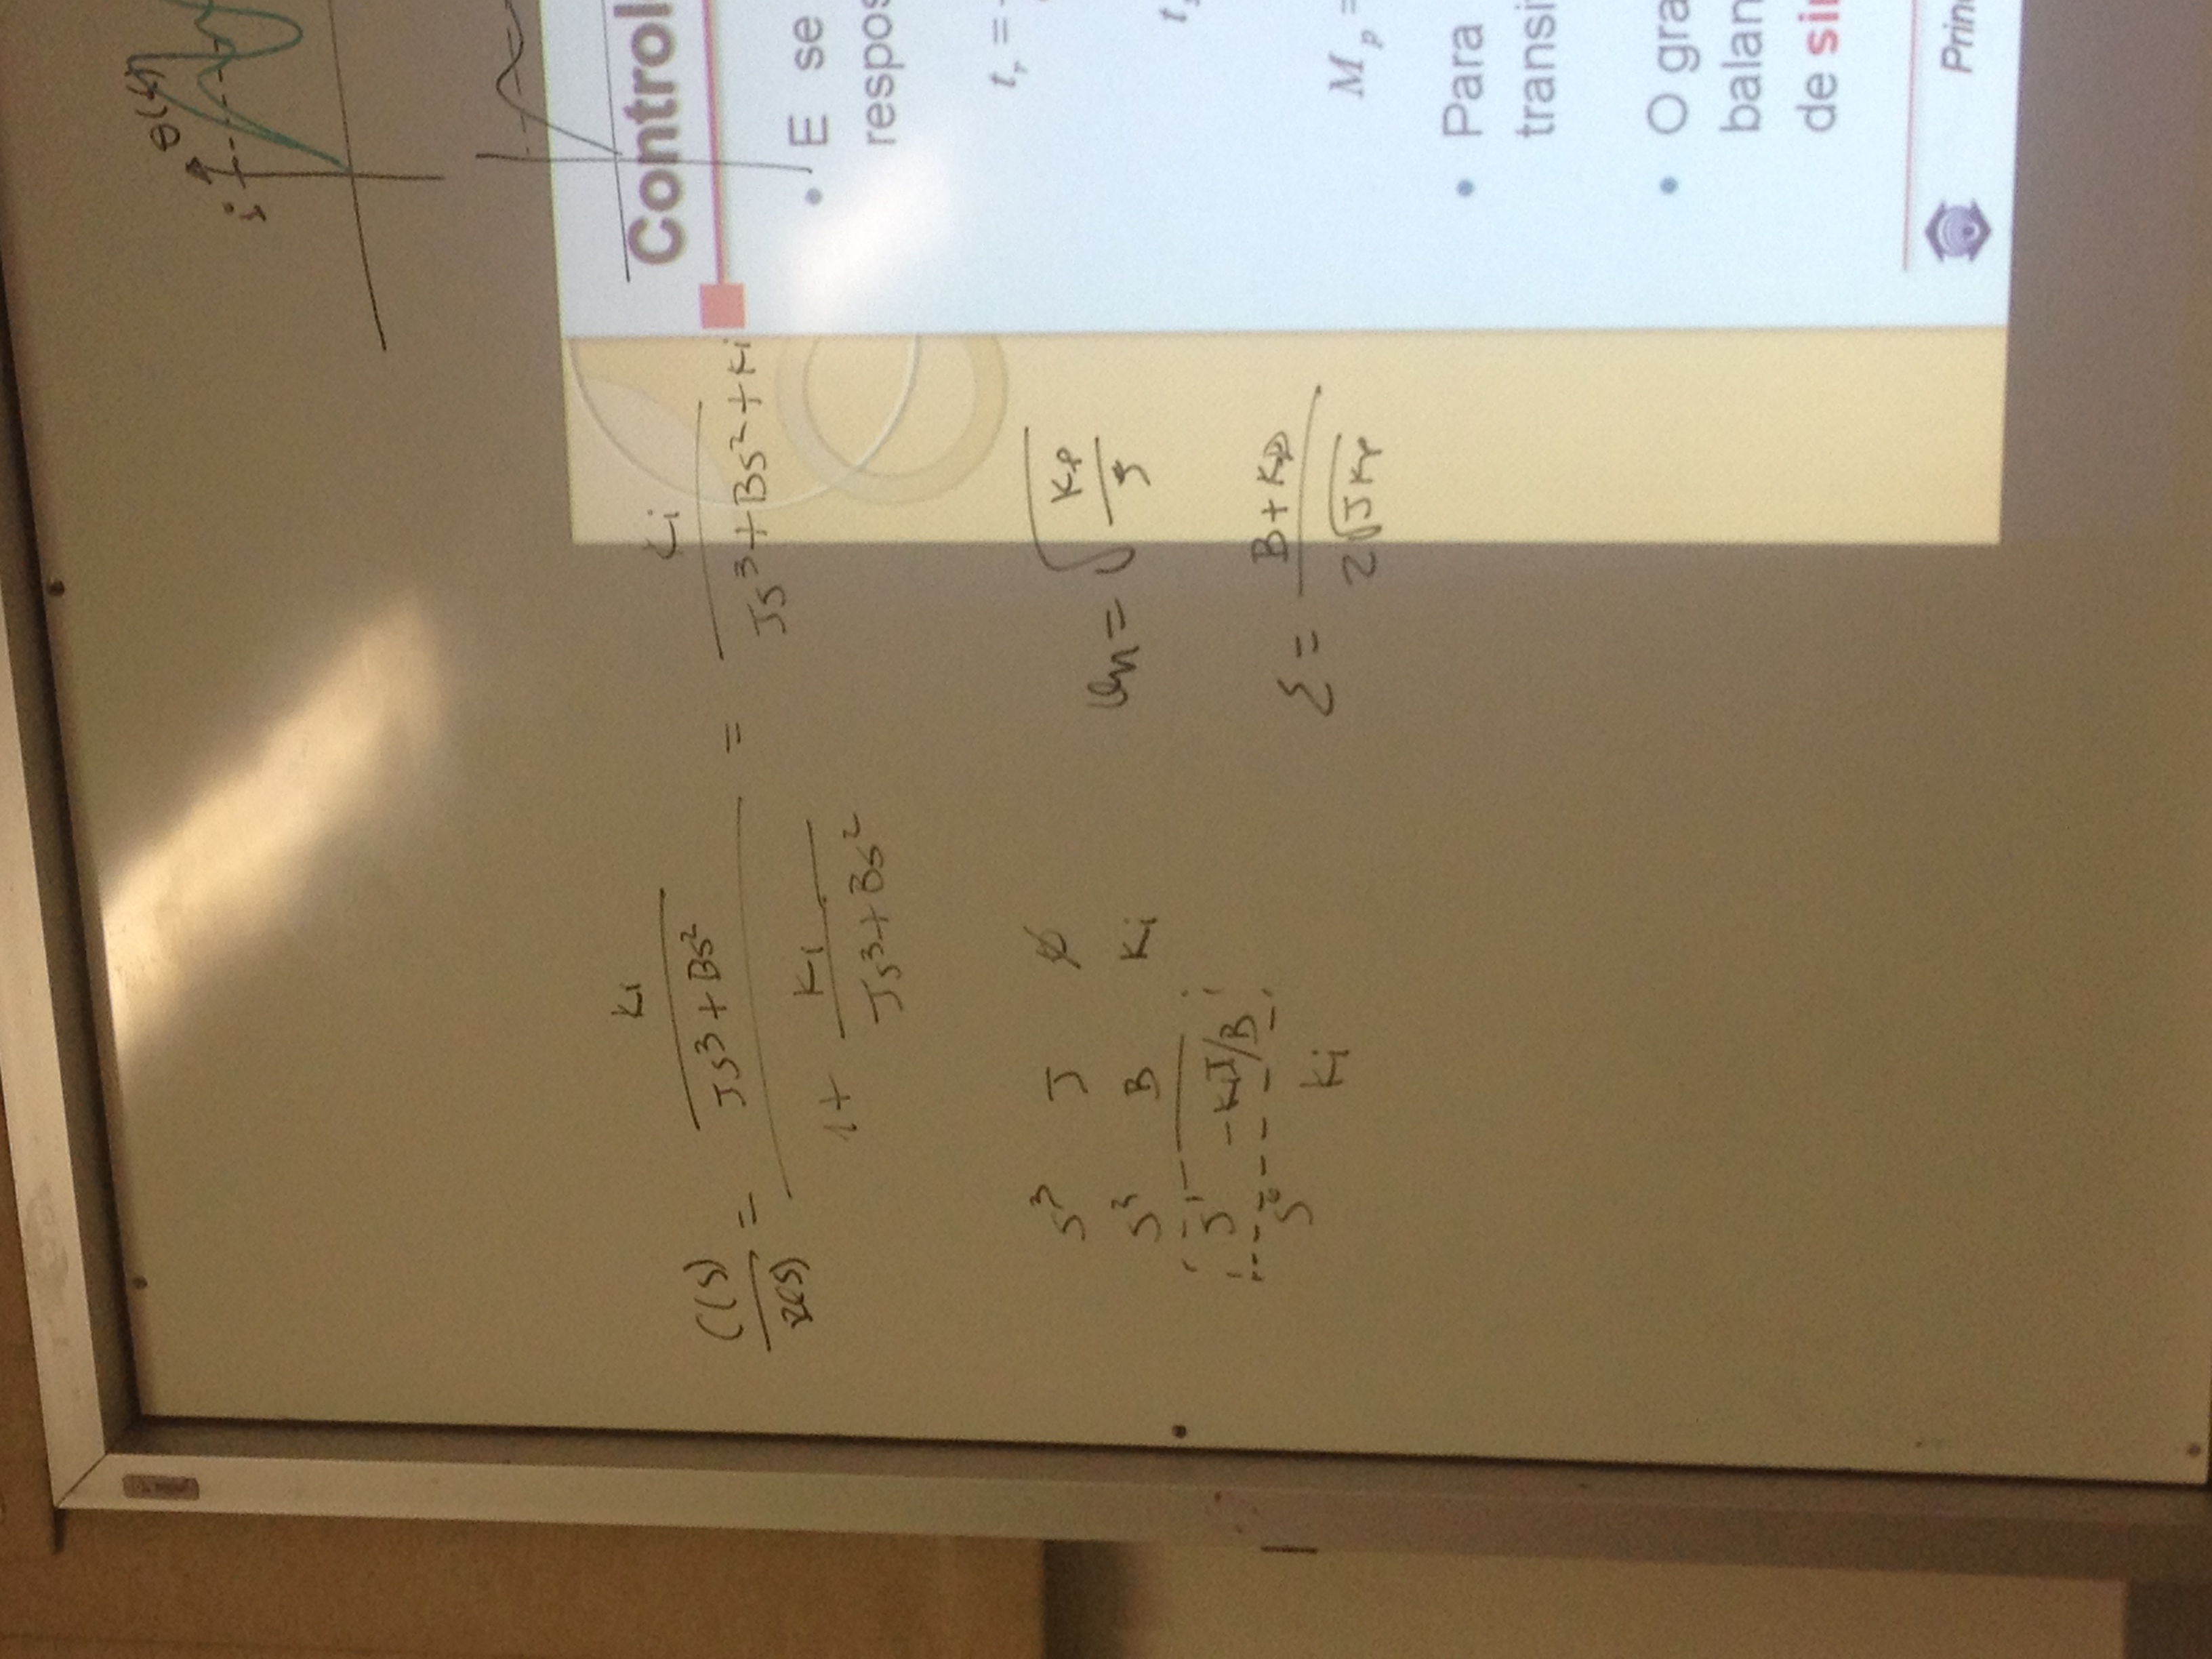 θ(t)
C(s)/R(s) = (Ki/(Js³+Bs²))/(1+ Ki/(Js³+Bs²)) = Ki/(Js³+Bs²+Ki)
s³ J ∅
s² B Ki
s¹ -KiJ/B
s⁰ Ki
ωn = √(Kp/J)
ξ = (B+KD)/(2√(JKp))
Control
• E se
respos
t_r =
t_s
M_p =
• Para
transi
• O gra
balan
de si
Prin